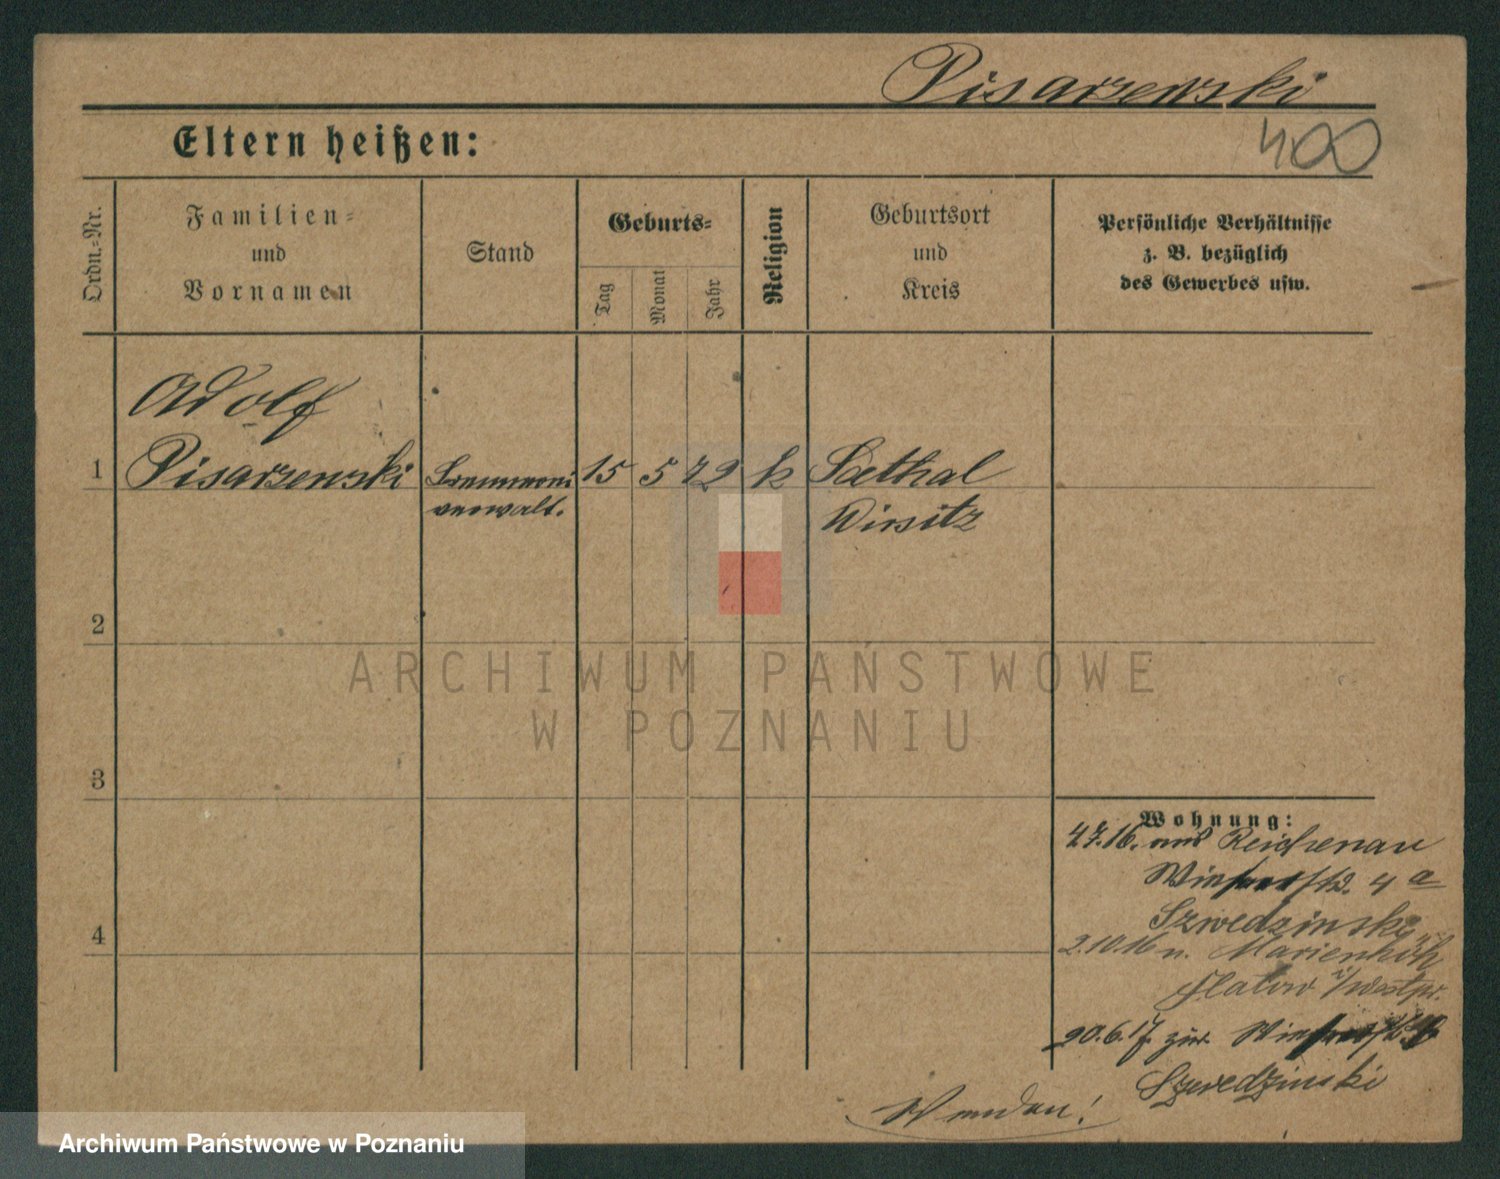 Pisarzewski
400
Eltern heißen:
Ordn.=Nr.
Familien=
und
Vornamen
Stand
Geburts=
Tag
Monat
Jahr
Religion
Geburtsort
und
Kreis
Persönliche Verhältnisse
z. B. bezüglich
des Gewerbes usw.
Adolf
1 Pisarzewski Brennerei 15 5 72 k Saethal
verwalt. Wirsitz
2
3
4
Wohnung:
4.7.16. aus Reichenau
4 a
Szwedzinski
2.10.16 n. Marienhöh
Flatow i/Westpr.
20.6.17. zur.
Szwedzinski
Wenden!
ARCHIWUM PAŃSTWOWE
W POZNANIU
Archiwum Państwowe w Poznaniu